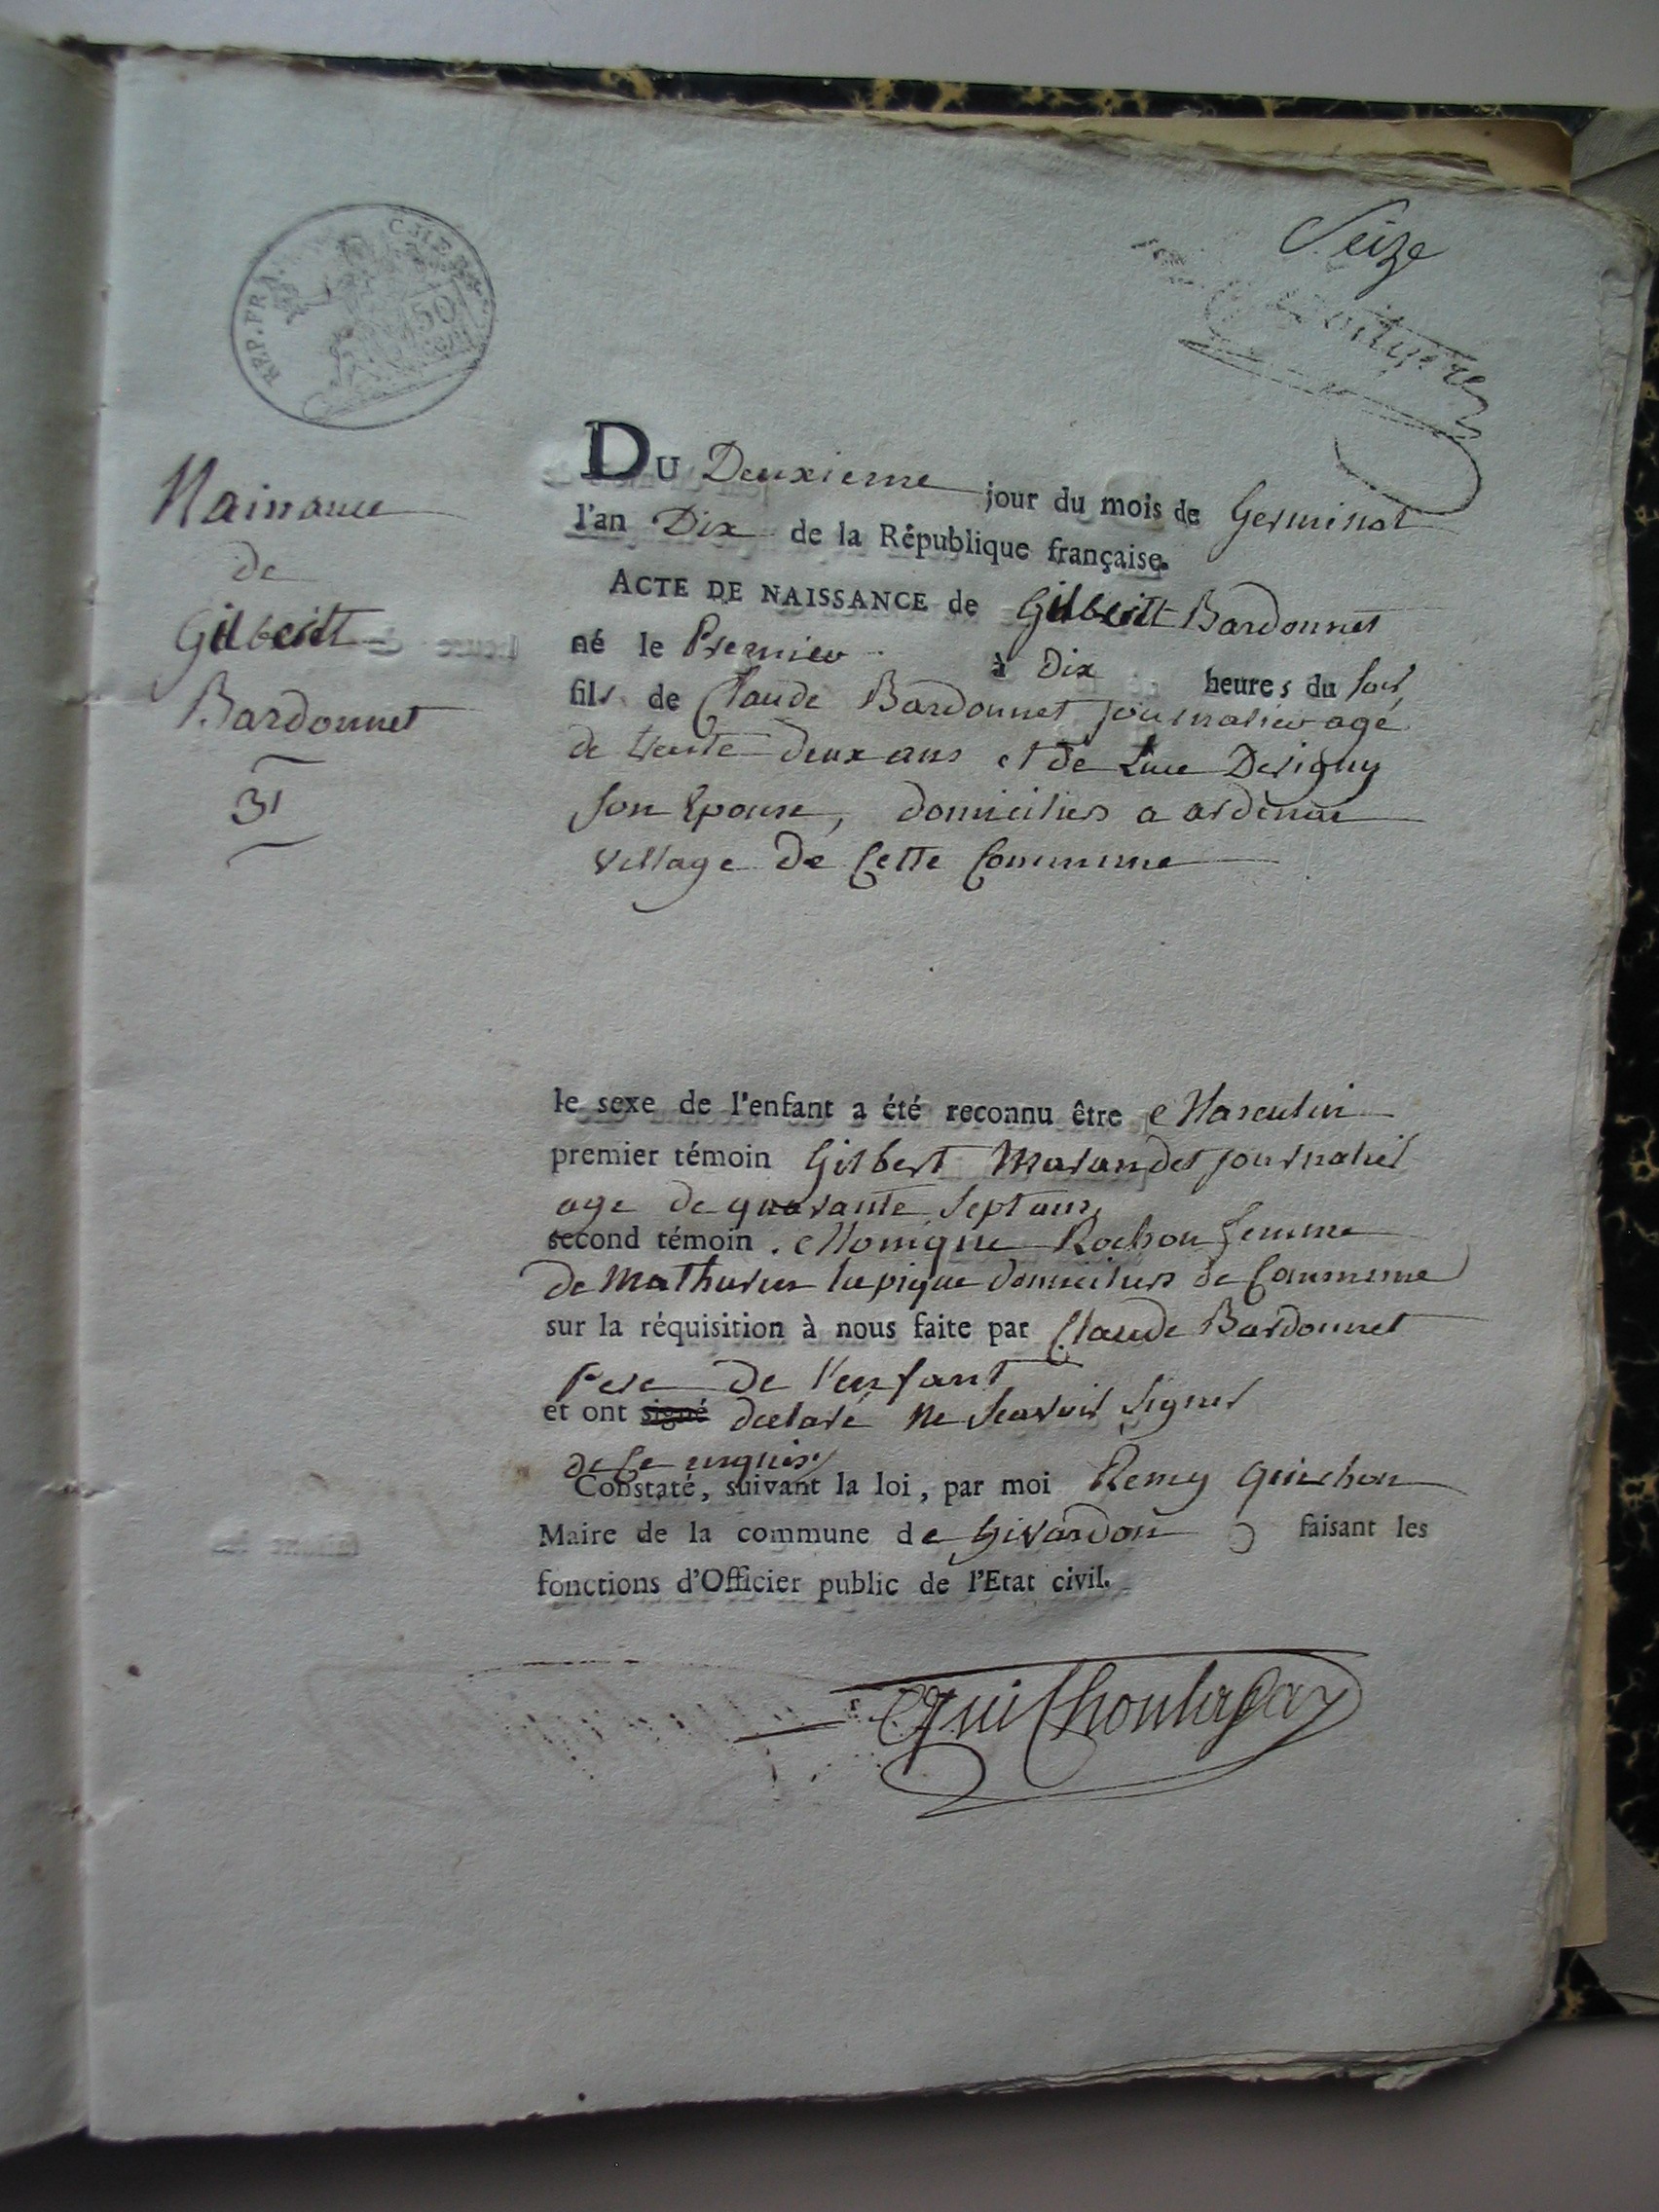 Seize
REP.FRA.
CHER
50
DU Deuxieme jour du mois de Germinal
l'an Dix de la République française.
ACTE DE NAISSANCE de Gilbertt Bardonnet
né le Premier à Dix heures du soir
fils de Claude Bardonnet journalier agé
de trente deux ans et de Luce Derigny
son Epouse, domiciliés a ardenne
village de Cette Commune
Naissance
de
Gilbertt
Bardonnet
31
le sexe de l'enfant a été reconnu être Masculin
premier témoin Gilbert Marandet journalier
age de quarante sept ans
second témoin Monique Rochon femme
de Mathurin lupique domiciliés de Commune
sur la réquisition à nous faite par Claude Bardonnet
Pere de l'enfant
et ont signé declaré ne scavoir signer
de ce enquis
Constaté, suivant la loi, par moi Remy Guichon
Maire de la commune de Givardon faisant les
fonctions d'Officier public de l'Etat civil.